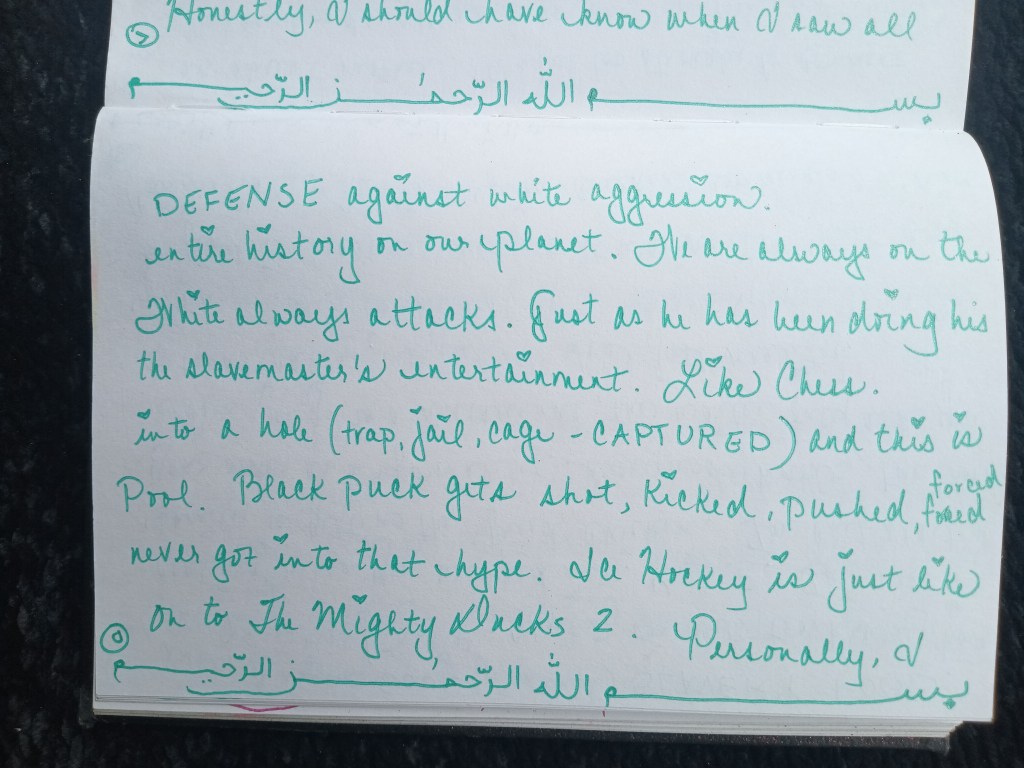 Honestly, I should have know when I saw all
بسم الله الرّحمٰن الرّحيم
DEFENSE against white aggression.
entire history on our planet. We are always on the
White always attacks. Just as he has been doing his
the slavemaster's entertainment. Like Chess.
into a hole (trap, jail, cage - CAPTURED) and this is
forced
Pool. Black puck gets shot, kicked, pushed, forced
never got into that hype. Ice Hockey is just like
on to The Mighty Ducks 2. Personally, I
بسم الله الرّحمٰن الرّحيم